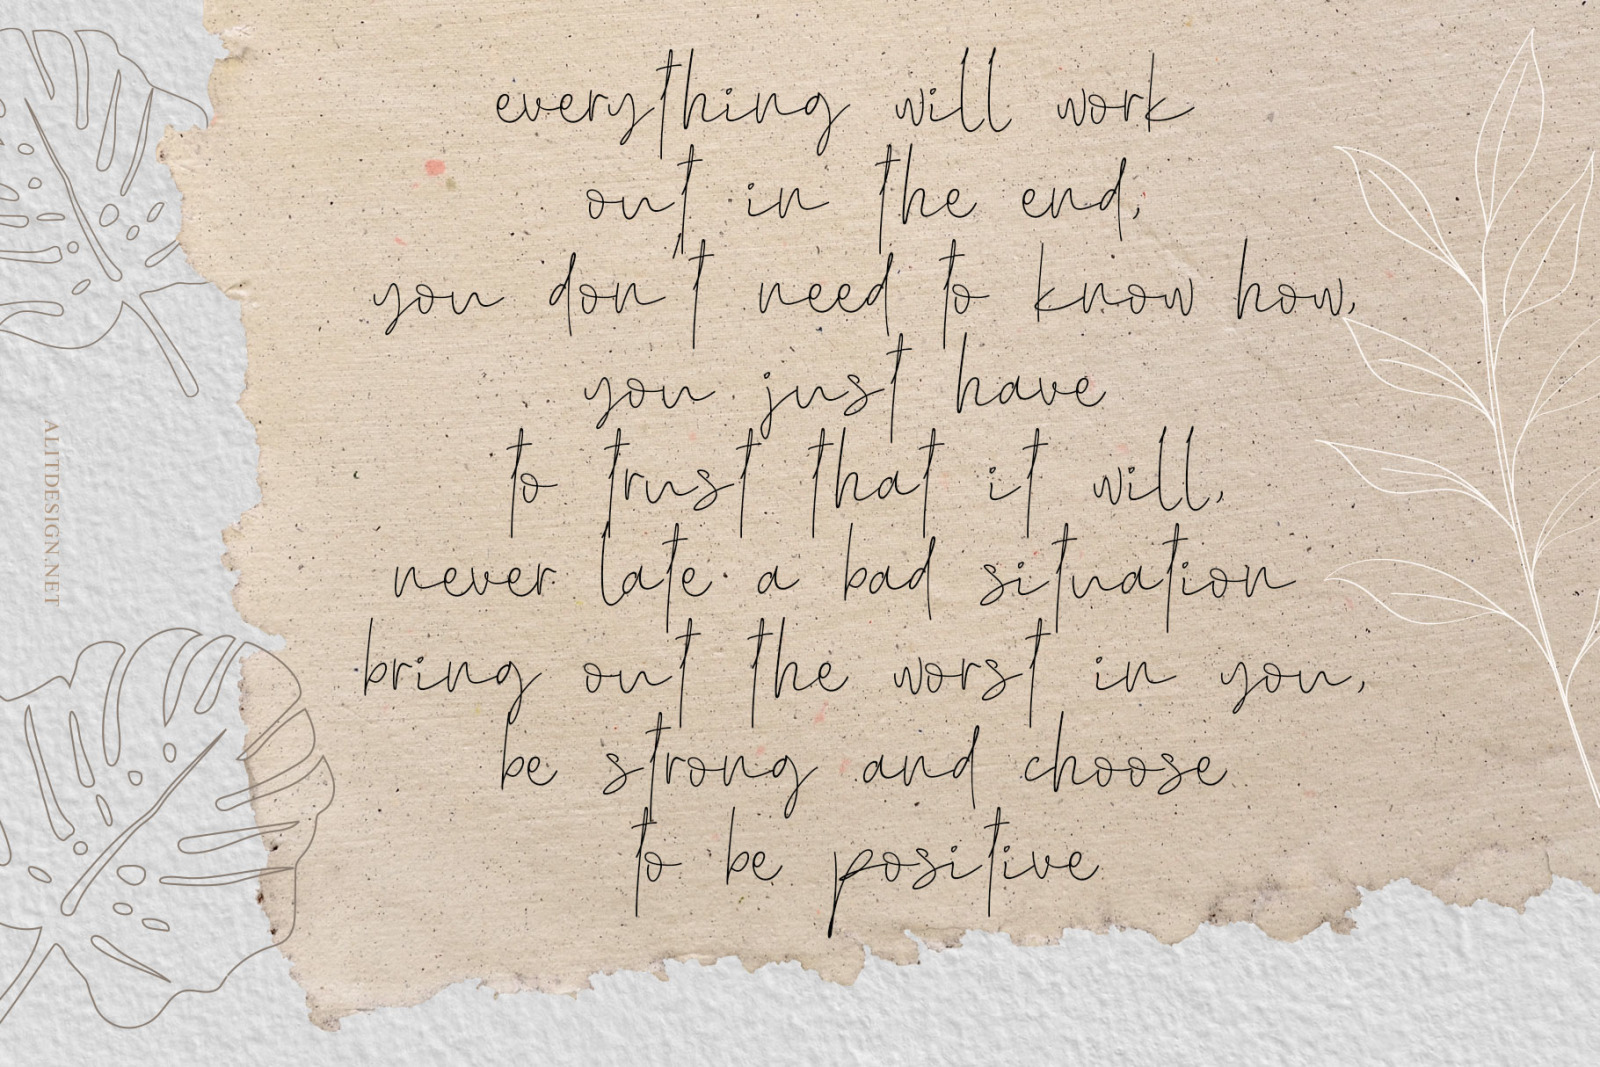 everything will work
out in the end,
you don't need to know how,
you just have
to trust that it will,
never late a bad situation
bring out the worst in you,
be strong and choose
to be positive
ALITDESIGN.NET